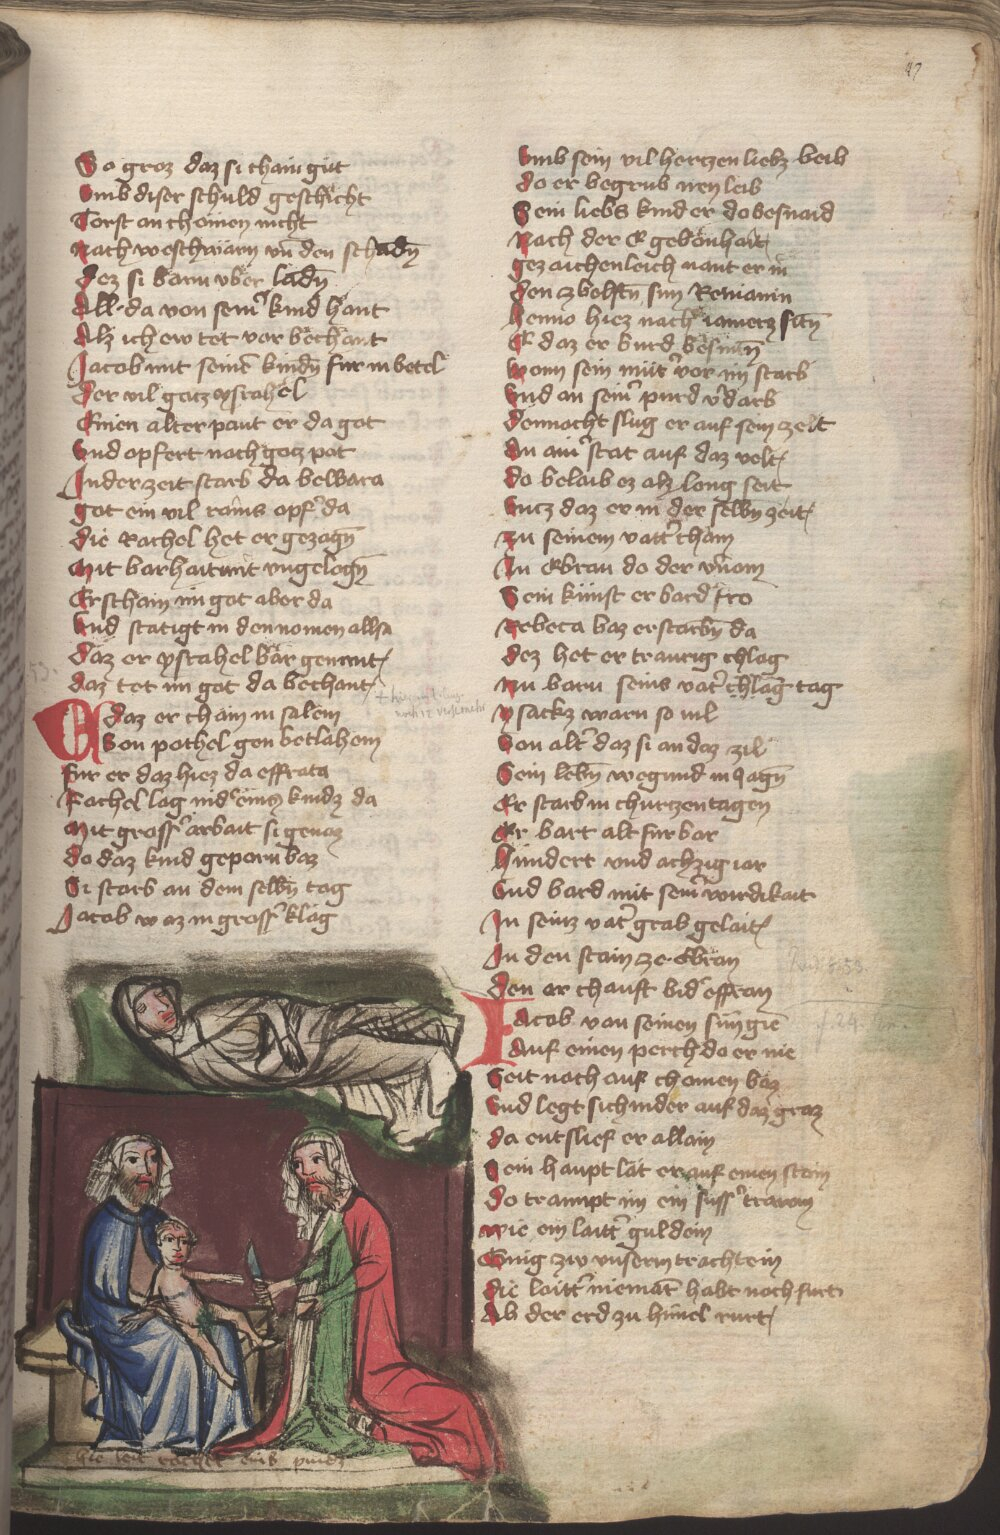 47
So groz daz si chain güt
Vmb diser schuld geschicht
Torst an chomen nicht
Nach weschwärn vn̄ den schadn̄
dez si barn vber ladn̄
All da von sem̄ kind hant
Alz ich ew tet vor bechant
Jacob mit seinē kindn̄ fur in betel
Der vil gotz ysrahel
Einen alter paut er da got
Vnd opfert nach gotz pot
In der zeit starb da delbara
got ein vil rains opfer da
die Rachel het er gezogn̄
Mit barhait mit vngelogn̄
Erschain im got aber da
Vnd statigt in den nomen allsa
daz er ysrahel bar genant
daz tet im got da bechant
E daz er cham in salem
Von pethel gen betlahem
fur er daz hiez da effrata
Rachel lag nider eins kindz da
Mit grosser arbait si genaz
do daz kind geporn baz
Si starb an dem selbn̄ tag
Jacob waz in grosser klag
vmb sein vil hertzen liebz beib
do er begrub iren leib
Sein liebs kind er do besnaid
Nach der E gebonhait
gezaichenleich nant er in
den zbelftn̄ sun Beniamin
benno hiez nach iamerz sitn̄
E daz er burd besnitn̄
wann sein müter vor im starb
Vnd an seiner purd verdarb
dennocht slug er auf sein zelt
An ainer stat auf daz velt
do belaib ez alz long seit
Vncz daz er in der selbn̄ zeit
zu seinem vatter cham
In Ebran do der vernam
Sein kunft er bard fro
Rebeca baz erstorbn̄ da
dez het er traurig chlag
Nu barn seins vater chlag tag
ysackz warn so vil
Von alter daz si an daz zil
Sein lebn̄ wegund in iagn̄
Er starb in churtzen tagen
Er bart alt fur bar
hundert vnd achzig iar
Vnd bard mit seiner wirdikait
In seinz vater grab gelait
In den stain ze Ebran
den er chauft bider effran
Jacob von seinen sun gie
Auf einen perch do er nie
Seit noch auf chomen baz
Vnd legt sich nider auf daz graz
da entslief er allain
Sein haupt lät er auf einen stein
do trampt im ein susser trawm
wie ein laitter guldein
Ging zw vnserm trachtein
die laitter niemant habt noch furt
Ab der erd zu himel rurt
hie leit rachel eins